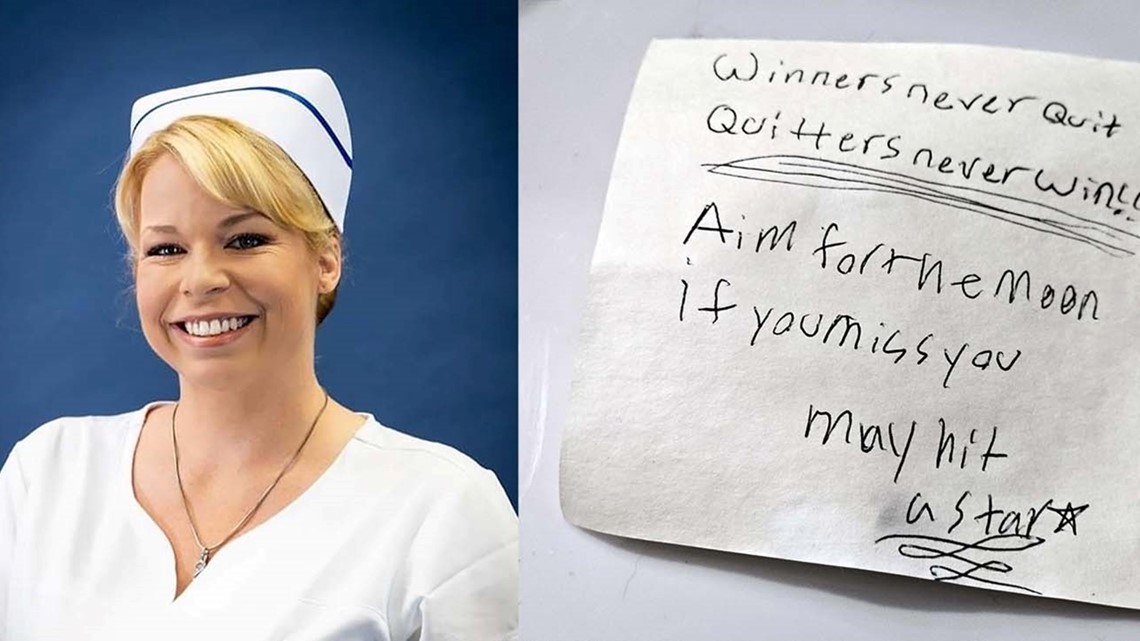 Winners never Quit
Quitters never Win!!
Aim for the Moon
if you miss you
may hit
a star☆